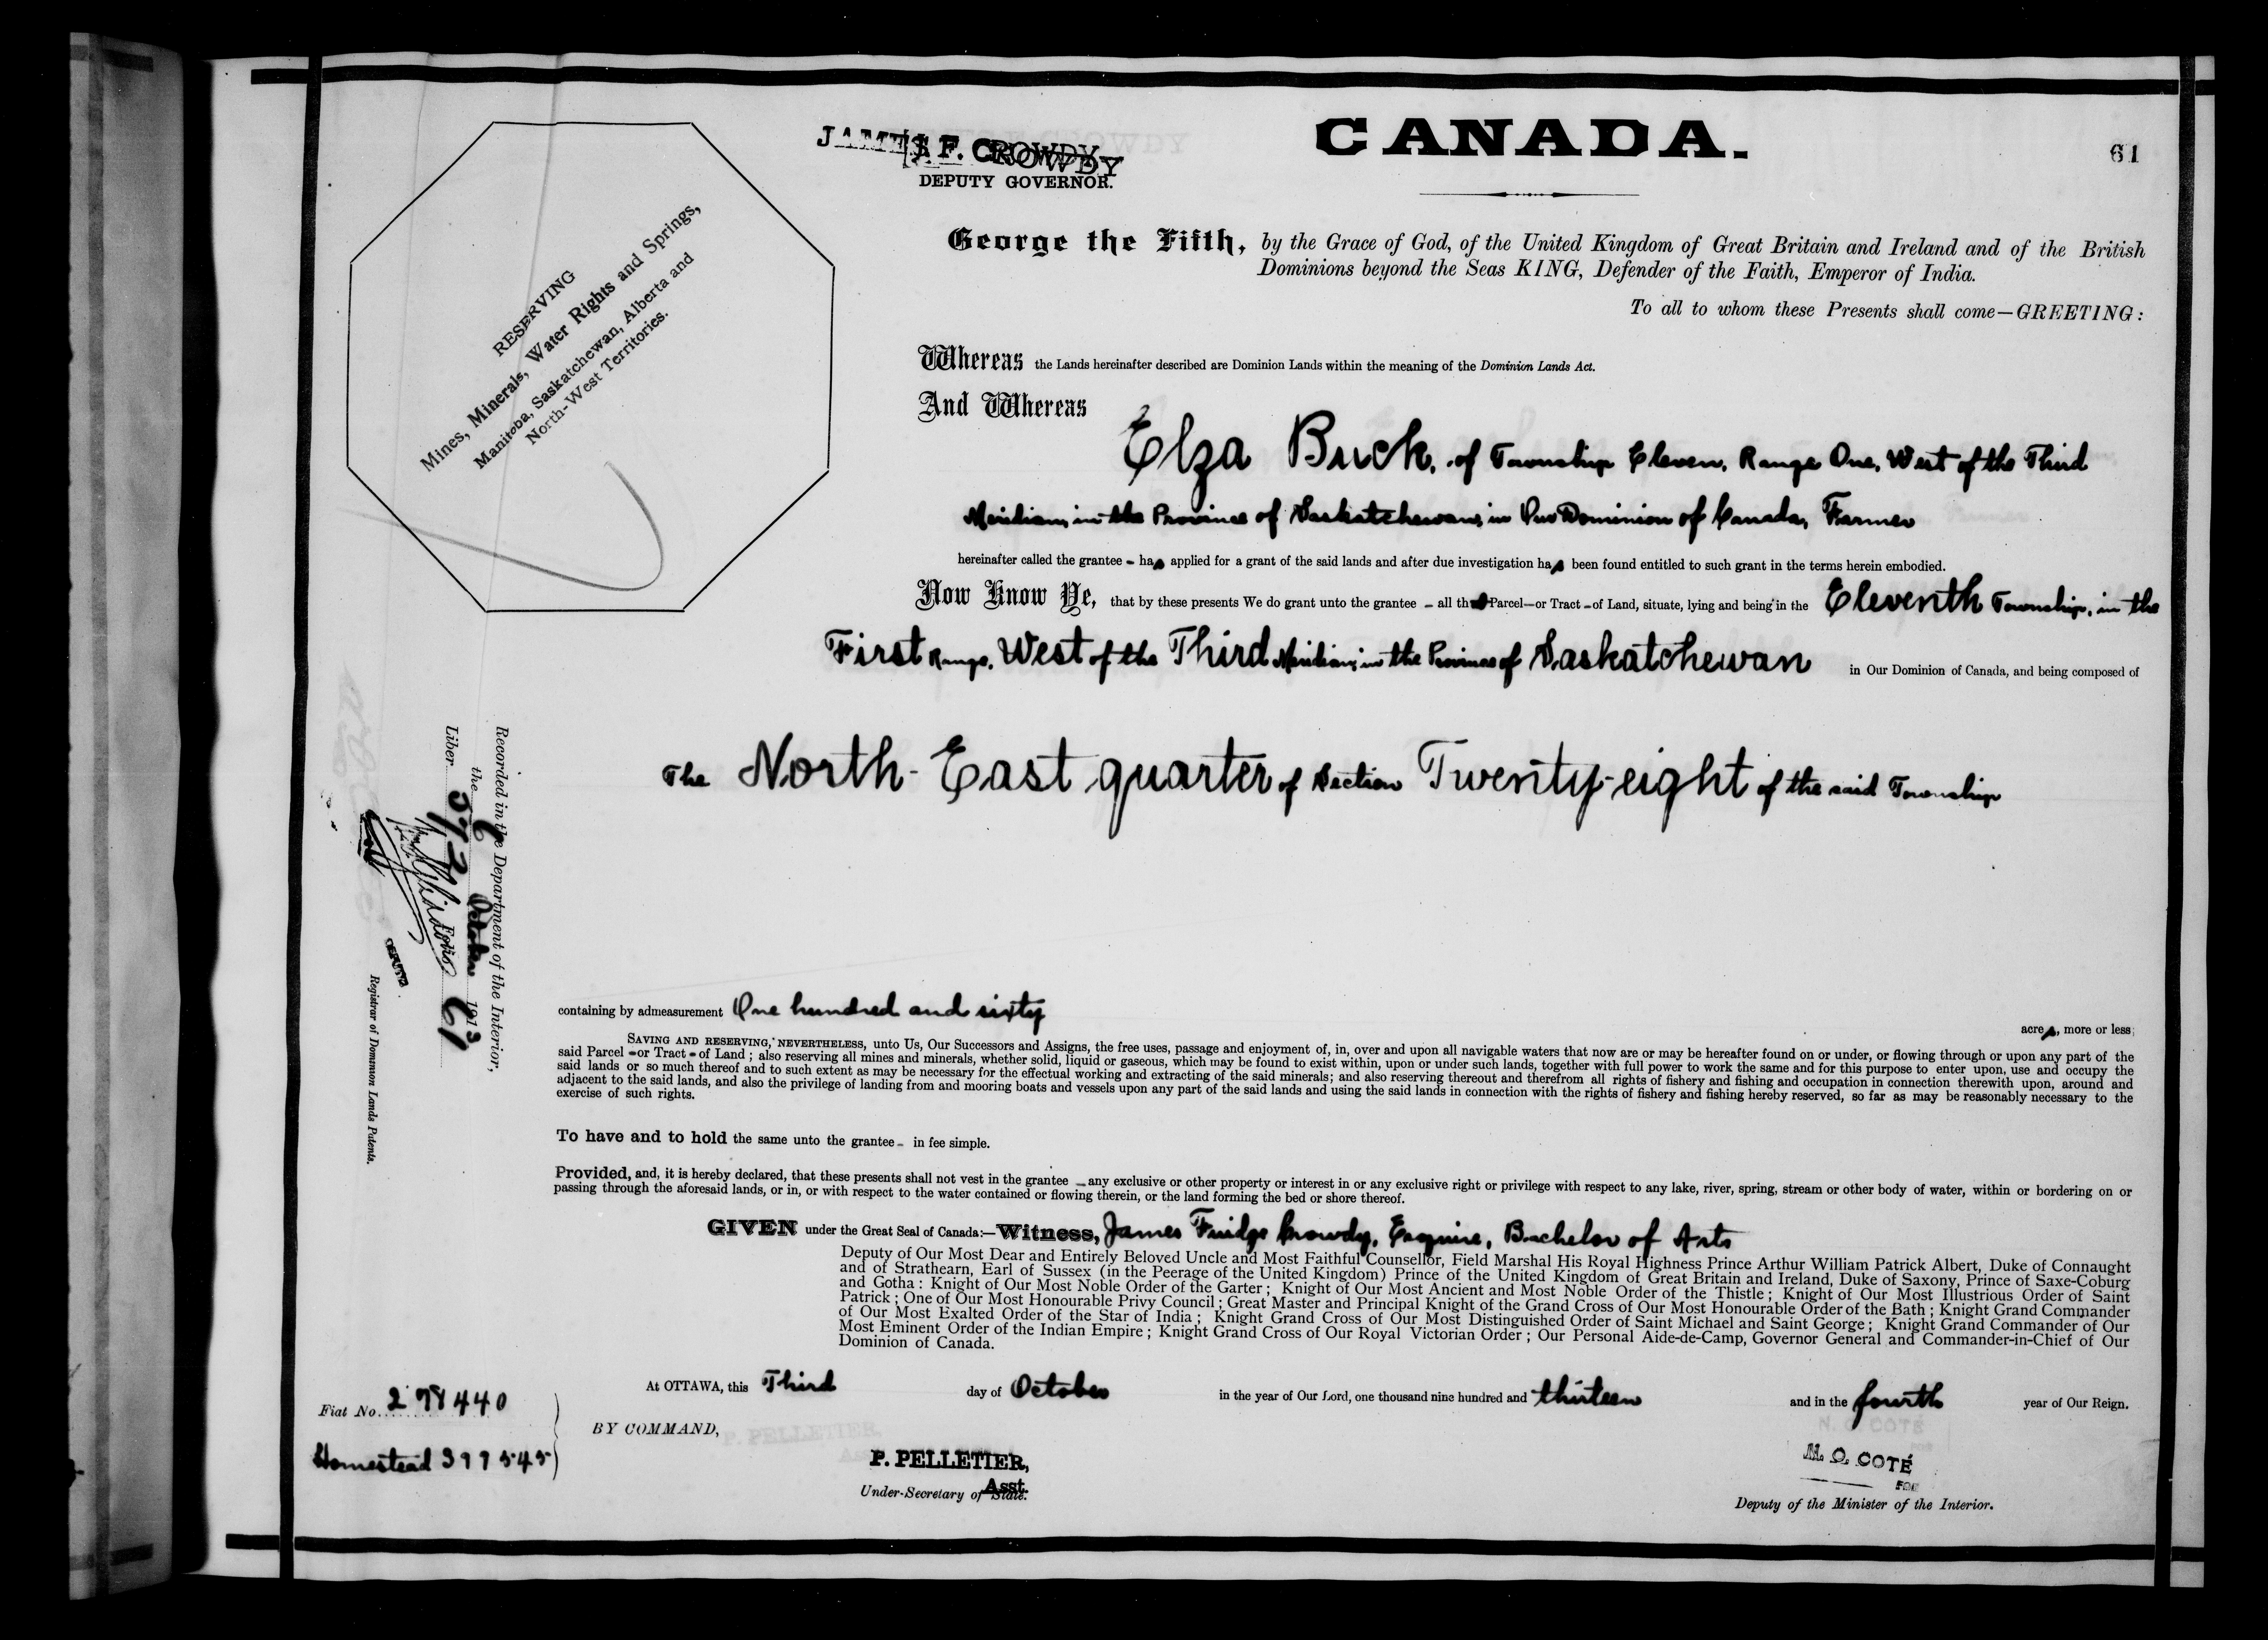 JAMES F. CROWDY
DEPUTY GOVERNOR.
CANADA.
61
RESERVING
Mines, Minerals, Water Rights and Springs,
Manitoba, Saskatchewan, Alberta and
North-West Territories.
George the Fifth, by the Grace of God, of the United Kingdom of Great Britain and Ireland and of the British
Dominions beyond the Seas KING, Defender of the Faith, Emperor of India.
To all to whom these Presents shall come—GREETING:
Whereas the Lands hereinafter described are Dominion Lands within the meaning of the Dominion Lands Act.
And Whereas
Elza Buck, of Township Eleven, Range One, West of the Third
Meridian, in the Province of Saskatchewan, in Our Dominion of Canada, Farmer
hereinafter called the grantee - has applied for a grant of the said lands and after due investigation has been found entitled to such grant in the terms herein embodied.
Now Know Ye, that by these presents We do grant unto the grantee - all that Parcel—or Tract - of Land, situate, lying and being in the Eleventh Township, in the
First Range, West of the Third Meridian, in the Province of Saskatchewan in Our Dominion of Canada, and being composed of
The North-East quarter of Section Twenty-eight of the said Township
Recorded in the Department of the Interior,
the 6 October 1913
Liber 572 Folio 61
DEPUTY
Registrar of Dominion Lands Patents.
containing by admeasurement One hundred and sixty
acres, more or less;
SAVING AND RESERVING, NEVERTHELESS, unto Us, Our Successors and Assigns, the free uses, passage and enjoyment of, in, over and upon all navigable waters that now are or may be hereafter found on or under, or flowing through or upon any part of the
said Parcel - or Tract - of Land; also reserving all mines and minerals, whether solid, liquid or gaseous, which may be found to exist within, upon or under such lands, together with full power to work the same and for this purpose to enter upon, use and occupy the
said lands or so much thereof and to such extent as may be necessary for the effectual working and extracting of the said minerals; and also reserving thereout and therefrom all rights of fishery and fishing and occupation in connection therewith upon, around and
adjacent to the said lands, and also the privilege of landing from and mooring boats and vessels upon any part of the said lands and using the said lands in connection with the rights of fishery and fishing hereby reserved, so far as may be reasonably necessary to the
exercise of such rights.
To have and to hold the same unto the grantee - in fee simple.
Provided, and, it is hereby declared, that these presents shall not vest in the grantee - any exclusive or other property or interest in or any exclusive right or privilege with respect to any lake, river, spring, stream or other body of water, within or bordering on or
passing through the aforesaid lands, or in, or with respect to the water contained or flowing therein, or the land forming the bed or shore thereof.
GIVEN under the Great Seal of Canada:—Witness, James Fuidge Crowdy, Esquire, Bachelor of Arts
Deputy of Our Most Dear and Entirely Beloved Uncle and Most Faithful Counsellor, Field Marshal His Royal Highness Prince Arthur William Patrick Albert, Duke of Connaught
and of Strathearn, Earl of Sussex (in the Peerage of the United Kingdom) Prince of the United Kingdom of Great Britain and Ireland, Duke of Saxony, Prince of Saxe-Coburg
and Gotha: Knight of Our Most Noble Order of the Garter; Knight of Our Most Ancient and Most Noble Order of the Thistle; Knight of Our Most Illustrious Order of Saint
Patrick; One of Our Most Honourable Privy Council; Great Master and Principal Knight of the Grand Cross of Our Most Honourable Order of the Bath; Knight Grand Commander
of Our Most Exalted Order of the Star of India; Knight Grand Cross of Our Most Distinguished Order of Saint Michael and Saint George; Knight Grand Commander of Our
Most Eminent Order of the Indian Empire; Knight Grand Cross of Our Royal Victorian Order; Our Personal Aide-de-Camp, Governor General and Commander-in-Chief of Our
Dominion of Canada.
At OTTAWA, this Third day of October in the year of Our Lord, one thousand nine hundred and thirteen and in the fourth year of Our Reign.
Fiat No. 278440
Homestead 397545
BY COMMAND,
P. PELLETIER,
Asst.
Under-Secretary of State.
N. O. COTÉ
FOR
Deputy of the Minister of the Interior.